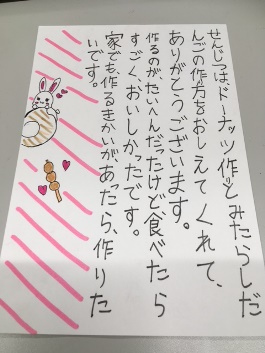 せんじつは、ドーナッツ作りとみたらしだ
んごの作り方をおしえてくれて、
ありがとうございます。
作るのが、たいへんだったけど食べたら
すごく、おいしかったです。
家でも、作るきかいが、あったら、作りた
いです。